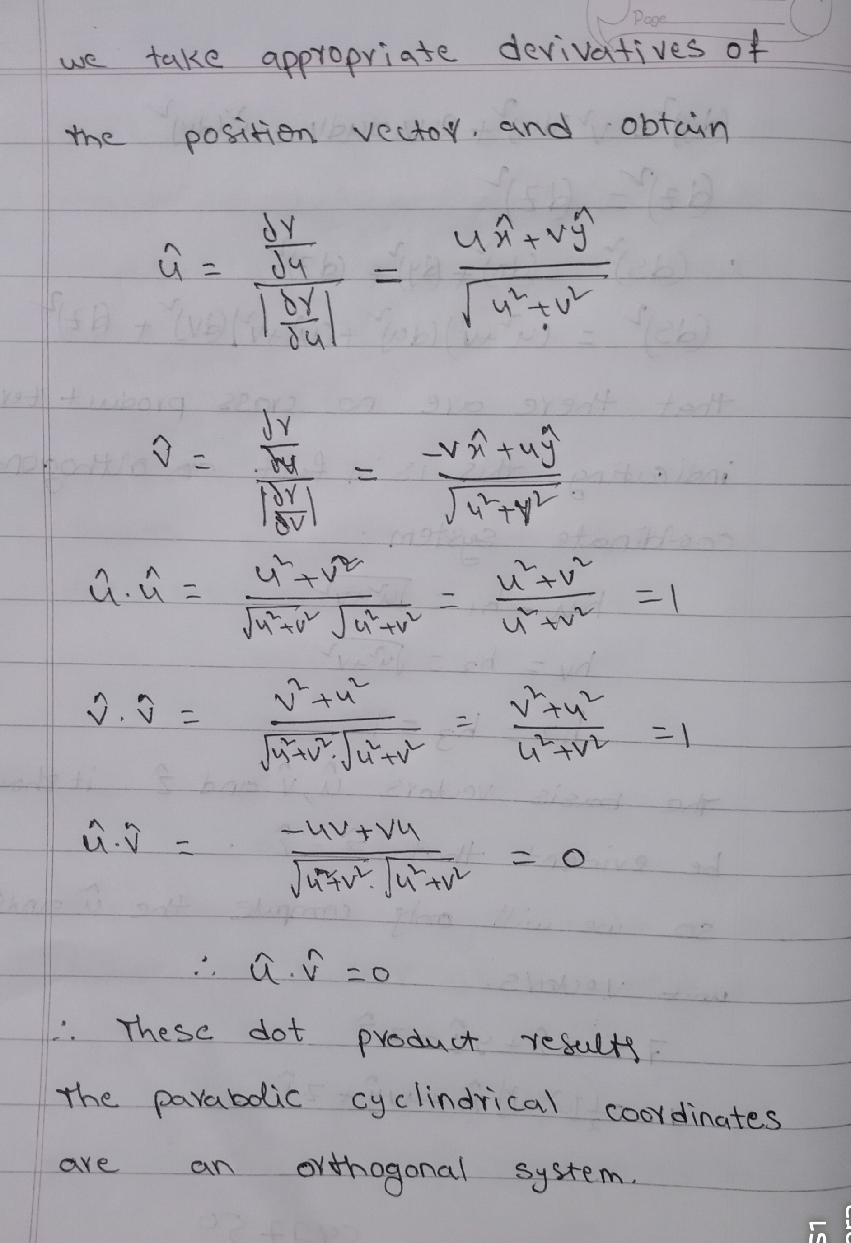 Page
we take appropriate derivatives of
the position vector. and obtain
û = (∂r/∂u) / |∂r/∂u| = (u x̂ + v ŷ) / √(u² + v²)
v̂ = (∂r/∂u) / |∂r/∂v| = (-v x̂ + u ŷ) / √(u² + v²)
û . û = (u² + v²) / (√(u² + v²) √(u² + v²)) = (u² + v²) / (u² + v²) = 1
v̂ . v̂ = (v² + u²) / (√(u² + v²) . √(u² + v²)) = (v² + u²) / (u² + v²) = 1
û . v̂ = (-uv + vu) / (√(u² + v²) . √(u² + v²)) = 0
∴ û . v̂ = 0
∴ These dot product results.
The parabolic cyclindrical coordinates
are an orthogonal system.